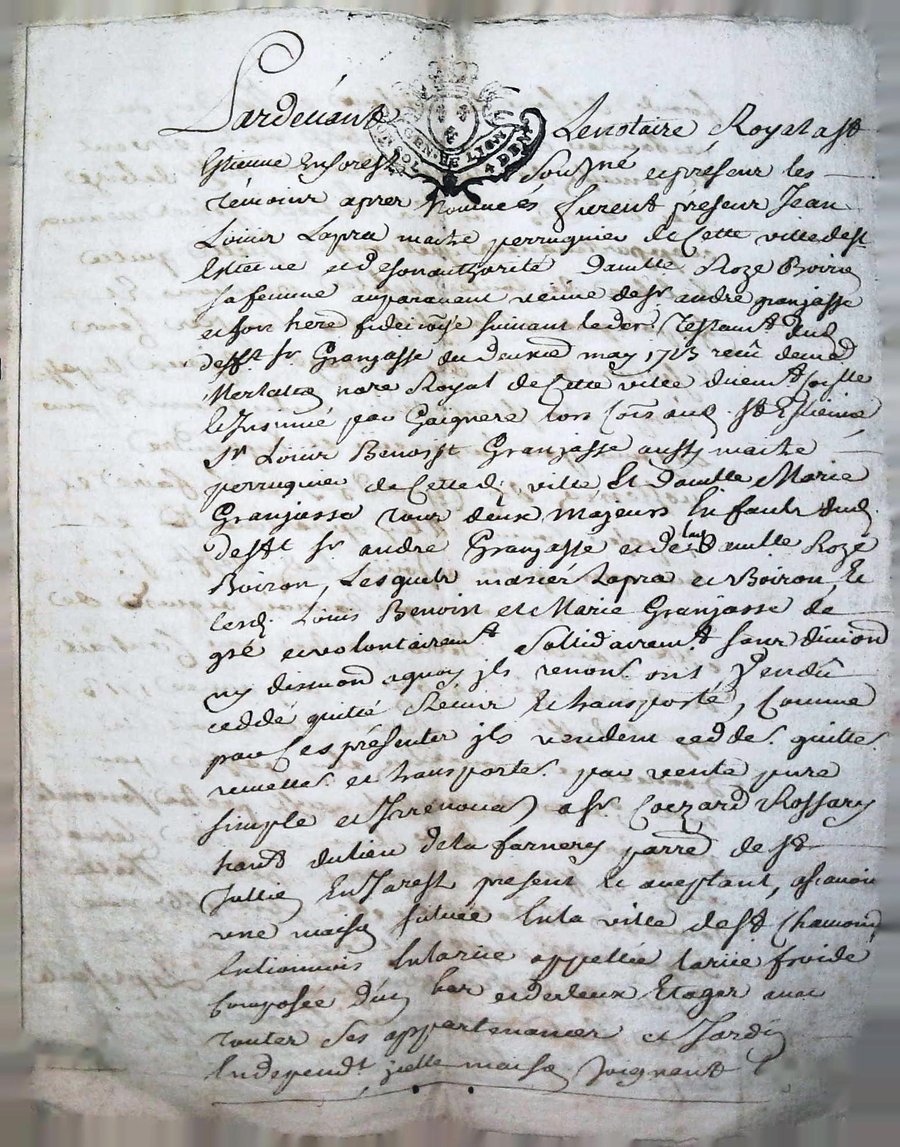 Pardevant Le notaire Royal a st
Estienne En forest Sousigné et présens les
témoins apres Nommés furent présens Jean
Louis Lapra maitre perruquier de Cette ville de st
Estienne et de son authorité Damlle Roze Boiron
sa femme auparavant veuve de sr andré granjasse
et son here suivant le der. Testamt dud.
defft sr Granjasse du deuxe may 1713 reçu de me
nore Royal de Cette ville
par Gaignere st Estienne
sr Louis Benoist Granjasse aussy maitre
perruquier de Cetted. ville Et Damlle Marie
Granjasse tous deux Majeurs Enfants dud.
defft sr andré Granjasse et de lad. Damlle Roze
Boiron, Lesquels mariés Lapra et Boiron, Et
lesd. Louis Benoist et Marie Granjasse de
gré et volontairemt Solidairemt sans division
ny discution aquoy jls renons. ont Vendû
ceddé quitté Remis Et transporté, Comme
par Ces présentes jls vendent cedde. quitte.
remette. et transporte. par vente pure
simple et Jrrévoca a sr. Rossary
hant du lieu de la farnery parre de st
Jullie En Jarest present Et aceptant, ascavoir
une maison située En la ville de st Chamond
En lionnois En la rue appellée la rue froide
Composée d'un bas et de deux Etages avec
toutes Ses appartenances et Jardin
Independt jcelle maison Joignant
GEN DE LION